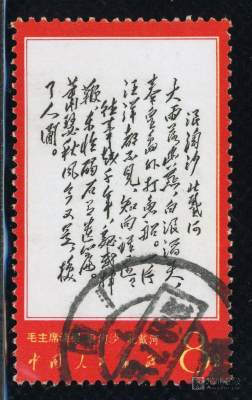 浪淘沙 北戴河
大雨落幽燕，白浪滔天，
秦皇岛外打鱼船。一片
汪洋都不见，知向谁边？
往事越千年，魏武挥
鞭，东临碣石有遗篇。
萧瑟秋风今又是，换
了人间。
毛主席诗 淘沙 北戴河
中国人民邮政 8